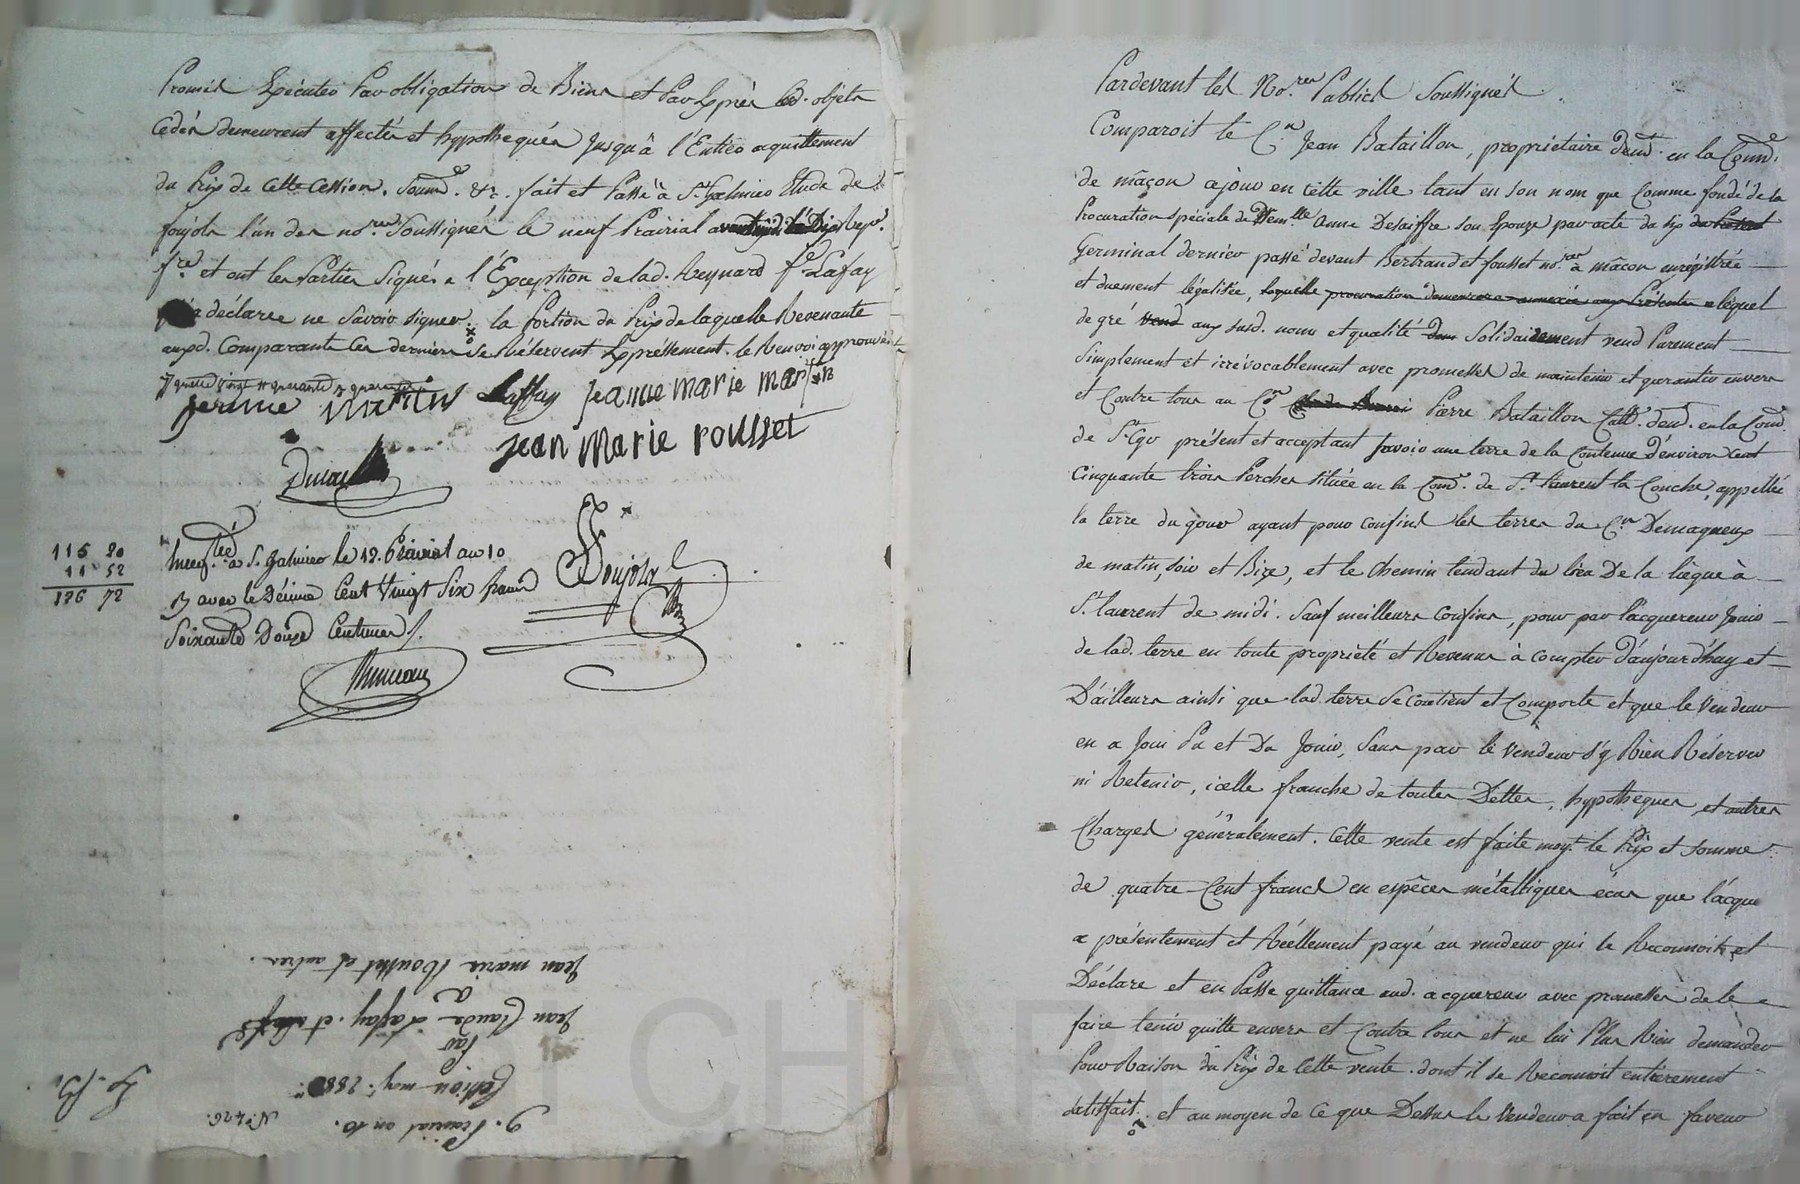 Promis Executer Par obligation de Biens et Par Exprès les d. objets
Cedés demeurent affectés et hypothequés Jusqu'à l'Entier acquittement
du Prix de Cette Cession. Soum. &c. fait et Passé à St. Galmier Etude de
foujols l'un des no.res Soussignés le neuf Prairial an Dix Rep.
fr.e et ont les Parties Signé, à l'Exception de lad. Reynard fe. Lafay
déclaree ne Savoir Signer. la Portion du Prix de laquelle Revenante
auxd. Comparants Ces derniers Se Réservent Expréssement. le Renvoi approuvé
jerome Laffay jeanne marie
jean marie rousset
Foujols
115 20
11 52
126 72
Enreg.tré à St. Galmier le 12. Prairial an 10
avec le Décime Cent Vingt Six francs
Soixante Douze Centimes
9. Prairial an 10. N.o 426.
Cession moy.
Par
Jean Claude Lafay. et
à
Jean marie Rousset et autres.
Pardevant les No.res Publics Soussignés
Comparoit le C.n Jean Bataillon, propriétaire dem.t en la Comm.e
de mâçon ce jour en cette ville tant en son nom que Comme fondé de la
Procuration Spéciale de Dem.lle anne Desaiffre Son Epouze par acte du six
Germinal dernier passé devant Bertrand et fousset no.res à mâcon enrégistrée
et duement légalisée, laquelle procuration demeurera annexée aux Présentes lequel
de gré vend aux susd. noms et qualité Solidairement vend Purement
Simplement et irrévocablement avec promesses de maintenir et garantir envers
et Contre tous au C.n Pierre Bataillon Cult.r dem.t en la Com.
de St. Cyr présent et acceptant Savoir une terre de la Contenue d'environ Cent
Cinquante trois Perches Située en la Com.e de St. laurent la Conche, appellée
la terre du gour ayant pour Confins les terres du C.n Demagneux
de matin, soir et Bize, et le Chemin tendant du lieu De la liègue à
St. laurent de midi. Sauf meilleurs Confins, pour par l'acquereur Jouir
de lad. terre en toute propriété et Revenus à Compter d'aujourd'huy et
D'ailleurs ainsi que lad. terre Se Contient et Comporte et que le Vendeur
en a Joui Pu et Du Jouir, Sans par le vendeur s'y Rien Réserver
ni Retenir, icelle franche de toutes Dettes, hypotheques, et autres
Charges généralement. Cette vente est faite moy.t le Prix et Somme
de quatre Cent francs en espèces métalliques écus que l'acque
a présentement et Réellement payé au vendeur qui le Reconnoit et
Déclare et en Passe quittance aud. acquereur avec promesses de le
faire tenir quitte envers et Contre tous et ne lui Plus Rien demander
Pour Raison du Prix de Cette vente. dont il Se Reconnoit entièrement
satisfait. et au moyen de Ce que Dessus le Vendeur a fait en faveur